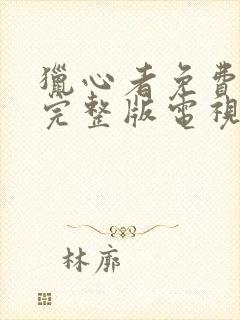 獵心者免費
完整版電視
林廓